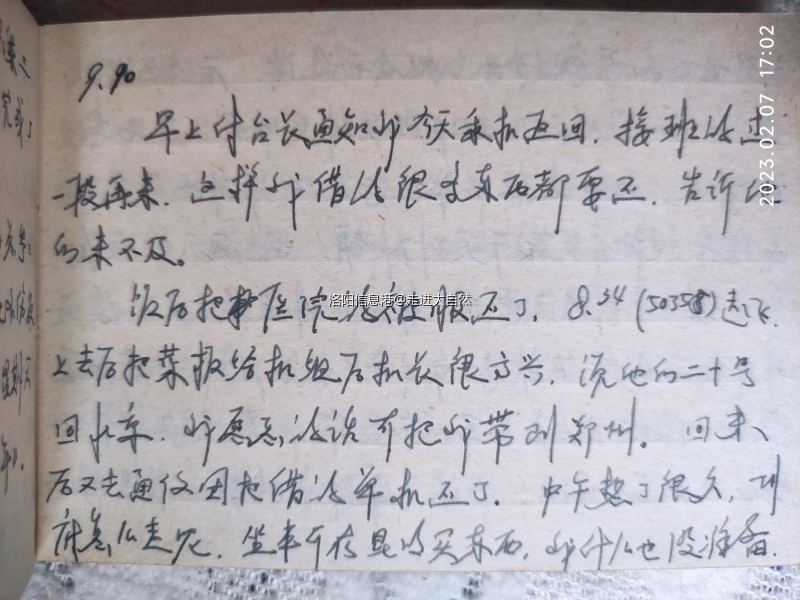 9.90
早上付台长通知我今天乘机返回，接班的过
一段再来。这样我借的很多东西都要还，告诉他
们来不及。
饭后把医院的被服还了，8.34（50358）起飞，
上去后把菜板给机组后机长很高兴，说他们二十号
回北京，我愿意的话可把我带到郑州。回来
后又去通仪团把借的单机还了。中午想了很久，到
底怎么走呢，坐车可在昆明买东西，我什么也没准备。
洛阳信息港@走进大自然
2023.02.07 17:02
完或了